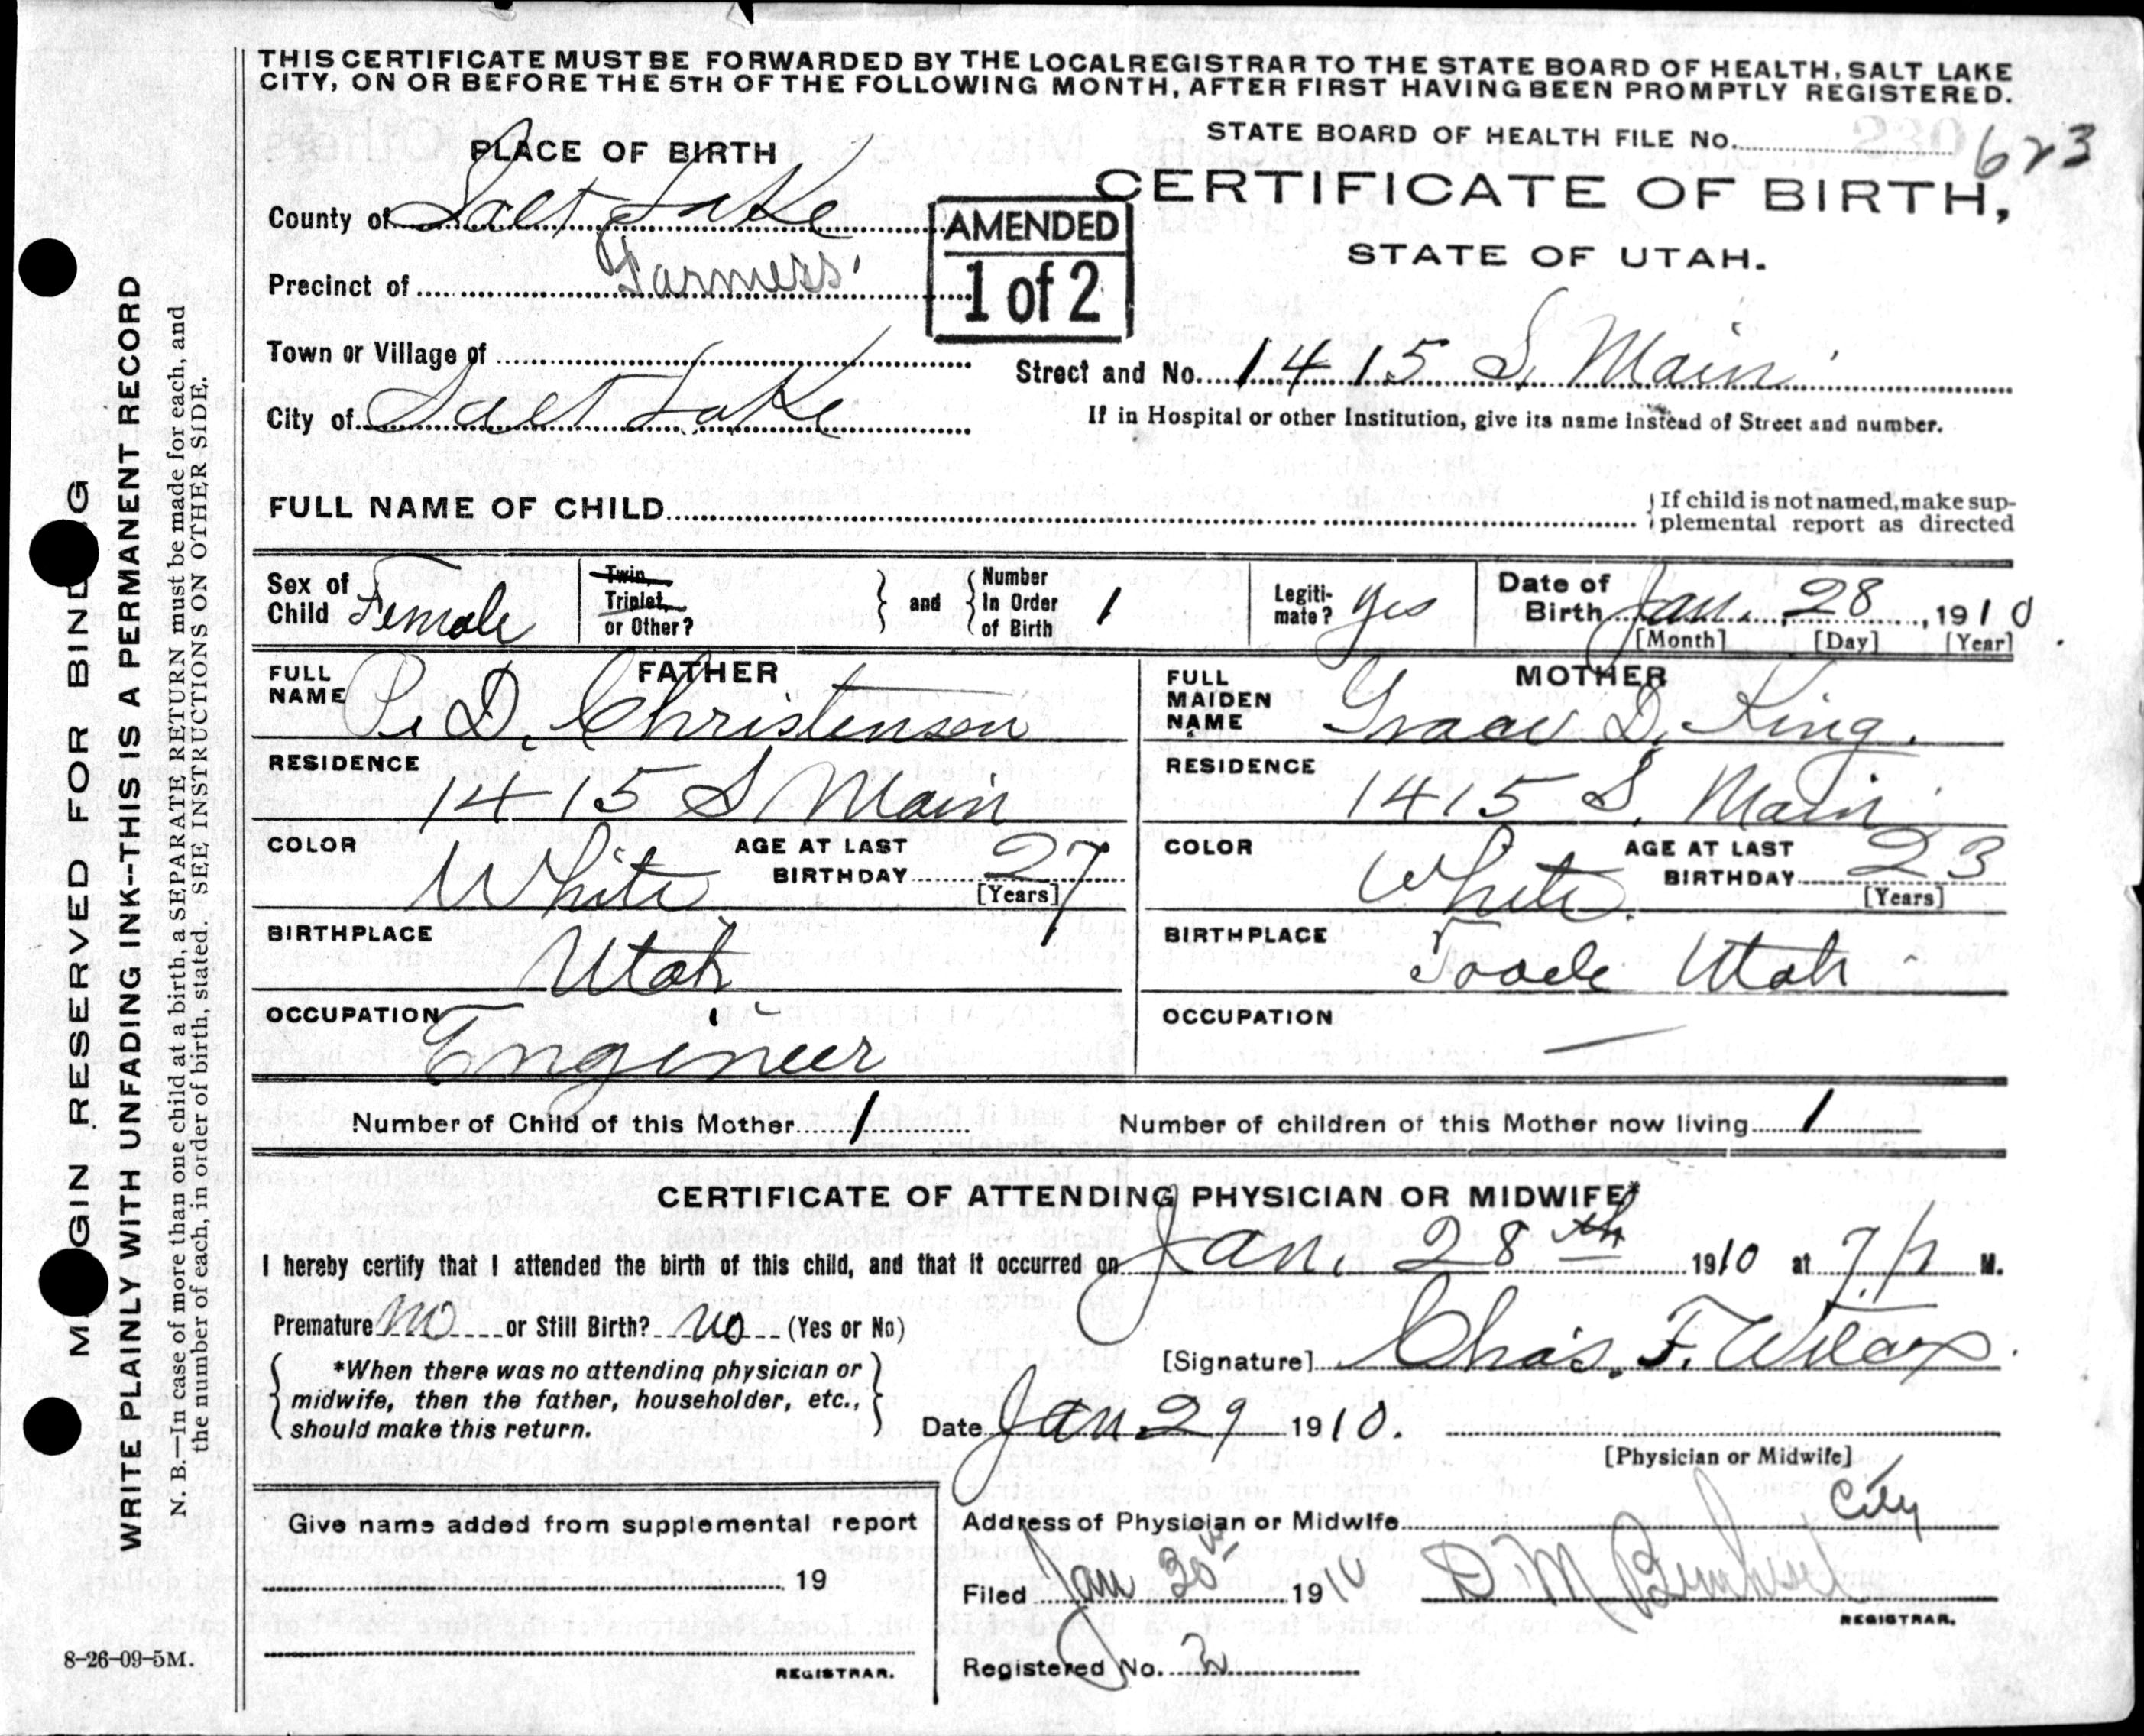 THIS CERTIFICATE MUST BE FORWARDED BY THE LOCAL REGISTRAR TO THE STATE BOARD OF HEALTH, SALT LAKE
CITY, ON OR BEFORE THE 5TH OF THE FOLLOWING MONTH, AFTER FIRST HAVING BEEN PROMPTLY REGISTERED.
STATE BOARD OF HEALTH FILE No. 623
PLACE OF BIRTH
CERTIFICATE OF BIRTH,
STATE OF UTAH.
County of Salt Lake
AMENDED
1 of 2
Precinct of Farmers'
Town or Village of
Street and No. 1415 S. Main
City of Salt Lake
If in Hospital or other Institution, give its name instead of Street and number.
FULL NAME OF CHILD
If child is not named, make sup-
plemental report as directed
Sex of Child Female
Twin, Triplet, or Other?
and
Number In Order of Birth 1
Legiti-mate? Yes
Date of Birth Jan. 28, 1910
[Month] [Day] [Year]
FATHER
FULL NAME P. D. Christensen
RESIDENCE 1415 S Main
COLOR White
AGE AT LAST BIRTHDAY 27
[Years]
BIRTHPLACE Utah
OCCUPATION Engineer
MOTHER
FULL MAIDEN NAME Grace D. King.
RESIDENCE 1415 S. Main
COLOR White
AGE AT LAST BIRTHDAY 23
[Years]
BIRTHPLACE Tooele Utah
OCCUPATION —
Number of Child of this Mother 1
Number of children of this Mother now living 1
CERTIFICATE OF ATTENDING PHYSICIAN OR MIDWIFE*
I hereby certify that I attended the birth of this child, and that it occurred on Jan. 28th 1910 at 7 M.
Premature No or Still Birth? No (Yes or No)
[Signature] Chas. F. Wilcox
*When there was no attending physician or
midwife, then the father, householder, etc.,
should make this return.
Date Jan 29 1910.
[Physician or Midwife]
Give name added from supplemental report
19
REGISTRAR.
Address of Physician or Midwife City
Filed Jan 30th 1910
D M
REGISTRAR.
Registered No. 2
8-26-09-5M.
MARGIN RESERVED FOR BINDING
WRITE PLAINLY WITH UNFADING INK--THIS IS A PERMANENT RECORD
N. B.—In case of more than one child at a birth, a SEPARATE RETURN must be made for each, and
the number of each, in order of birth, stated. SEE INSTRUCTIONS ON OTHER SIDE.